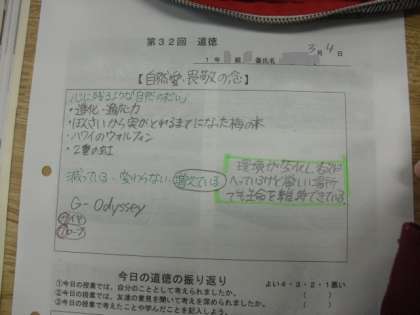 第３２回　道徳
１年　　組　　番氏名　　　　3月4日
【自然愛・畏敬の念】
心に残るような「自然の想い」
・進化・適応力
・ぼんさいから実がとれるまでになった梅の木
・ハワイのウォルフィン
・2重の虹
減っている・変わらない・増えている
環境が変化し、
へっているけど厳しい場所
でも生命を維持できている。
G-Odyssey
今日の道徳の振り返り
よい４・３・２・１悪い
①今日の授業では、自分のこととして考えられましたか。（　　）
②今日の授業では、友達の意見を聞いて考えを深められましたか。（　　）
③今日の授業で考えたことや学んだことを記入しよう。